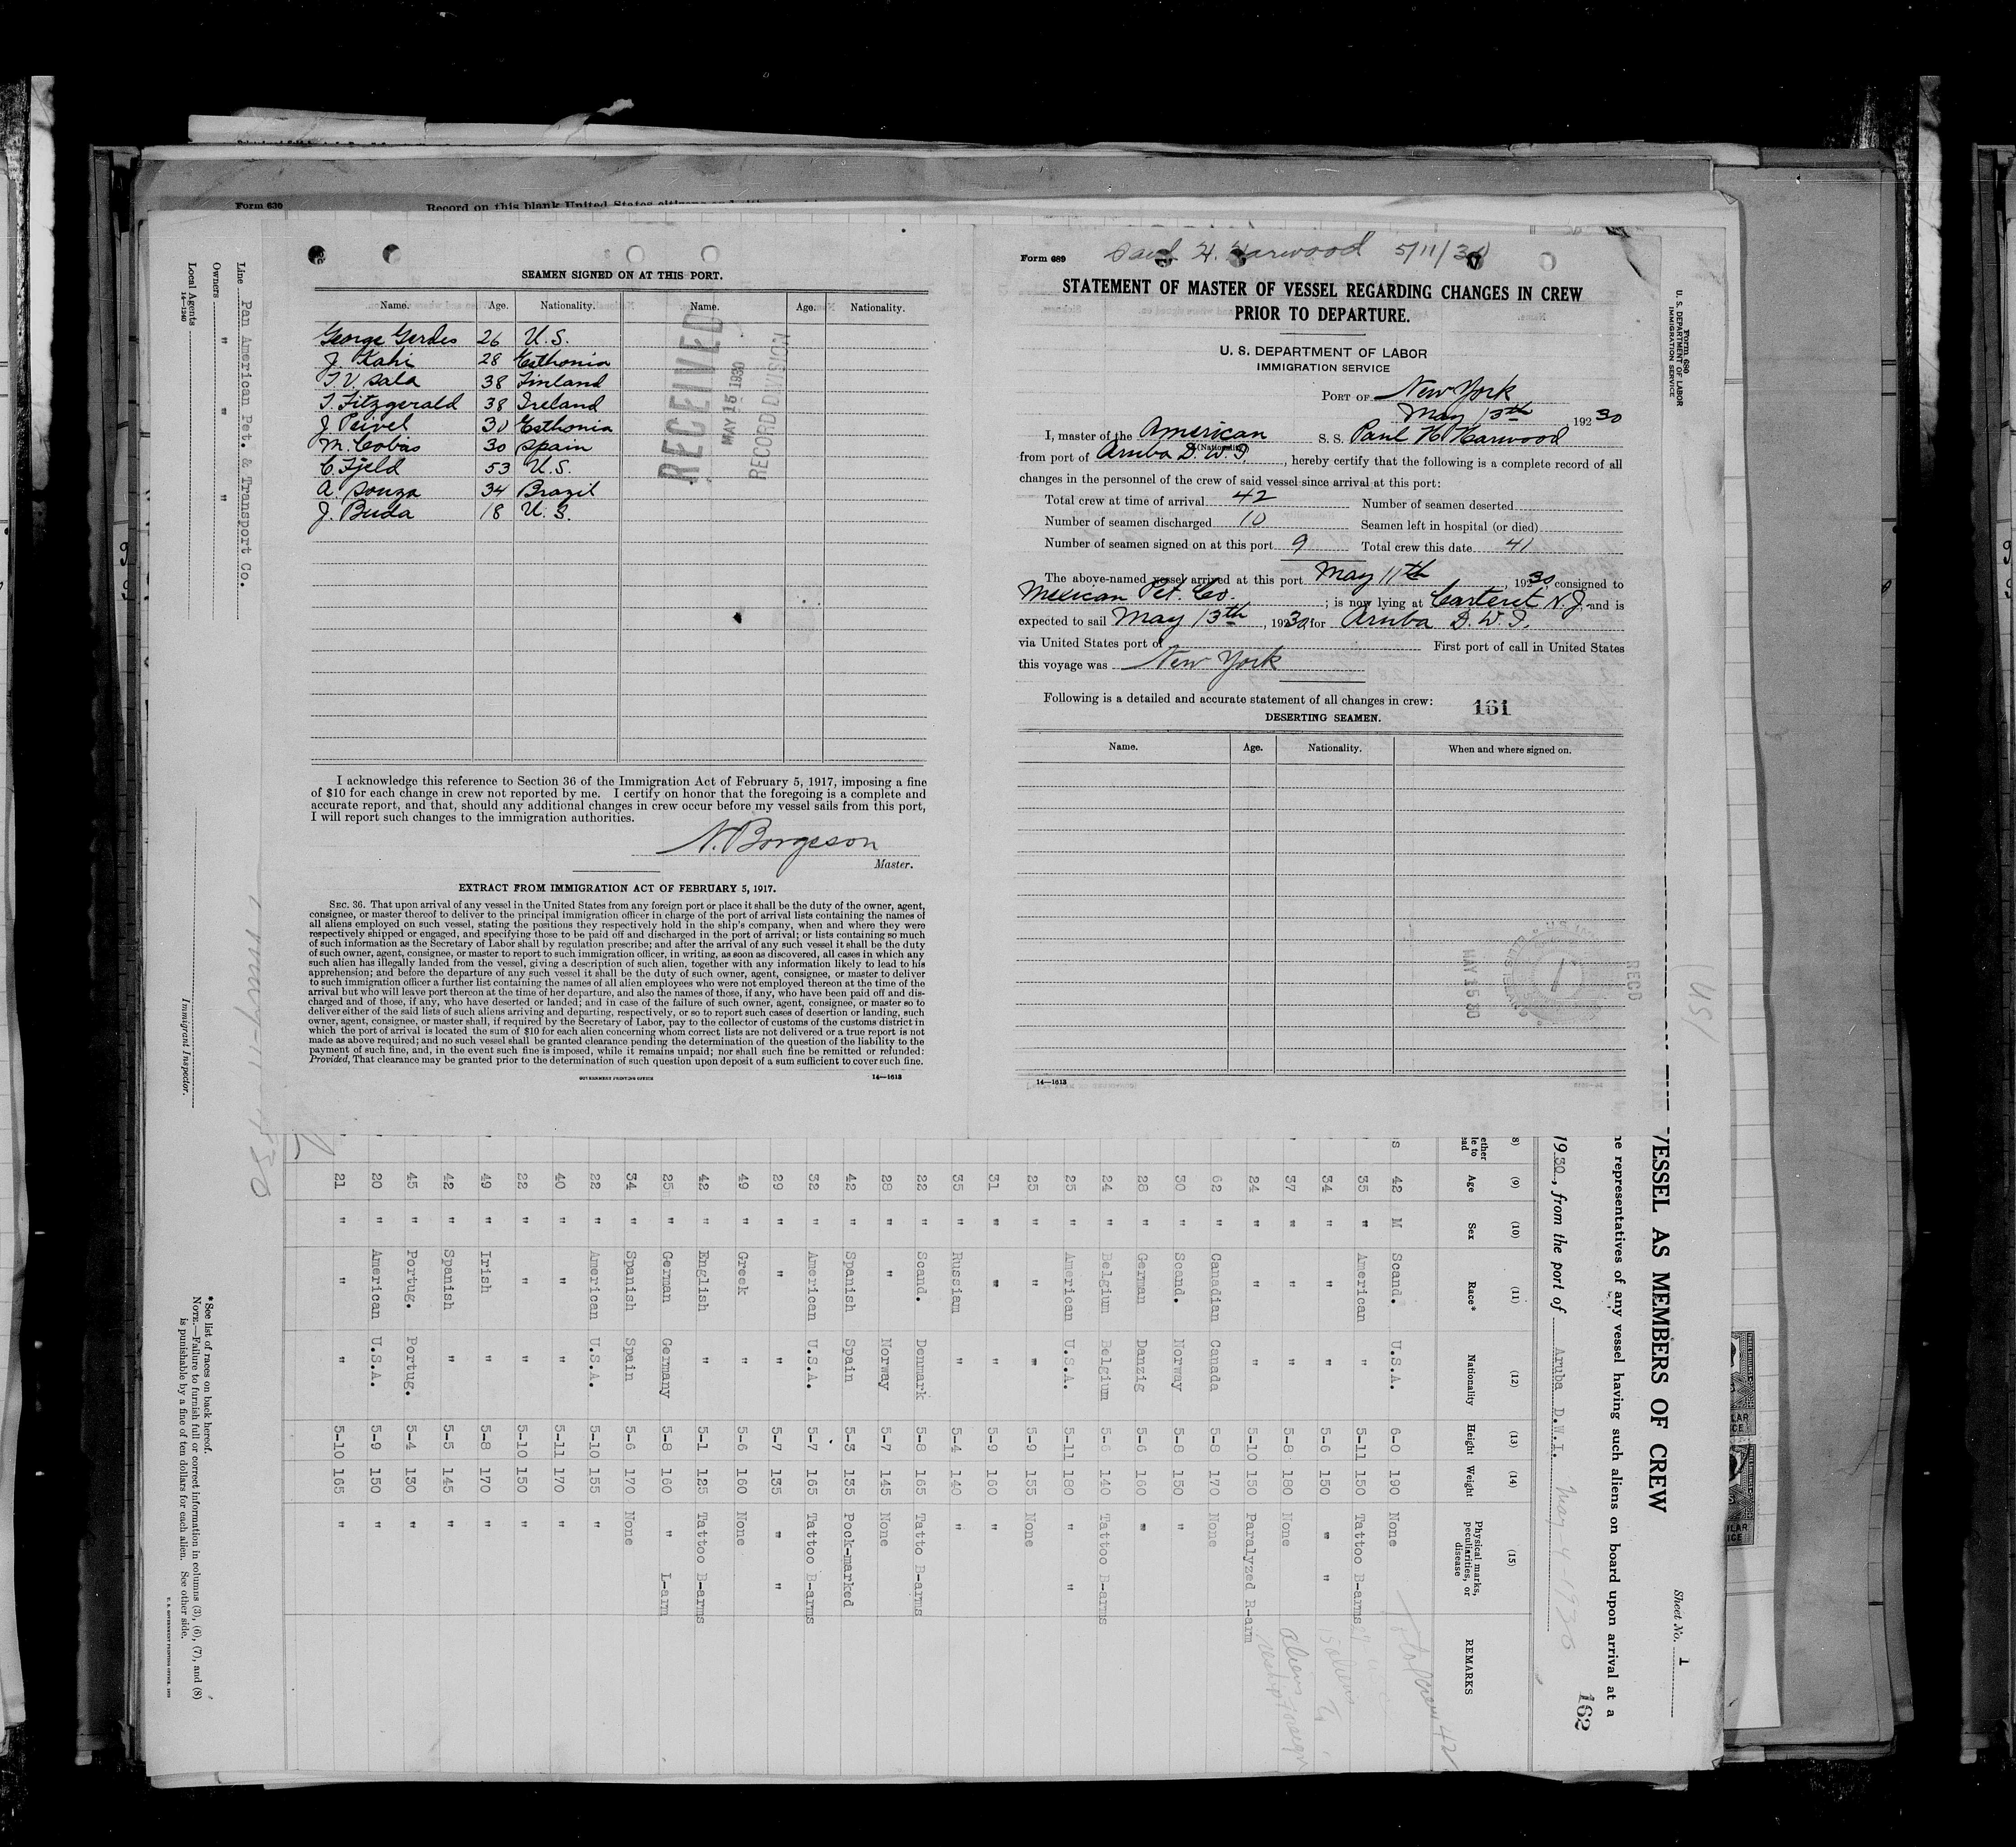 Form 630
Record on this blank United States
SEAMEN SIGNED ON AT THIS PORT.
Name. Age. Nationality. Name. Age. Nationality.
George Gerdes 26 U.S.
J. Kahi 28 Esthonia
T V. Sala 38 Finland
T. Fitzgerald 38 Ireland
J Peivel 30 Esthonia
M. Cobas 30 Spain
C. Fjeld 53 U.S.
A. Souza 34 Brazil
J. Buda 18 U.S.
RECEIVED
MAY 15 1930
RECORD DIVISION
I acknowledge this reference to Section 36 of the Immigration Act of February 5, 1917, imposing a fine
of $10 for each change in crew not reported by me. I certify on honor that the foregoing is a complete and
accurate report, and that, should any additional changes in crew occur before my vessel sails from this port,
I will report such changes to the immigration authorities.
N. Borgeson
Master.
EXTRACT FROM IMMIGRATION ACT OF FEBRUARY 5, 1917.
SEC. 36. That upon arrival of any vessel in the United States from any foreign port or place it shall be the duty of the owner, agent,
consignee, or master thereof to deliver to the principal immigration officer in charge of the port of arrival lists containing the names of
all aliens employed on such vessel, stating the positions they respectively hold in the ship's company, when and where they were
respectively shipped or engaged, and specifying those to be paid off and discharged in the port of arrival; or lists containing so much
of such information as the Secretary of Labor shall by regulation prescribe; and after the arrival of any such vessel it shall be the duty
of such owner, agent, consignee, or master to report to such immigration officer, in writing, as soon as discovered, all cases in which any
such alien has illegally landed from the vessel, giving a description of such alien, together with any information likely to lead to his
apprehension; and before the departure of any such vessel it shall be the duty of such owner, agent, consignee, or master to deliver
to such immigration officer a further list containing the names of all alien employees who were not employed thereon at the time of the
arrival but who will leave port thereon at the time of her departure, and also the names of those, if any, who have been paid off and dis-
charged and of those, if any, who have deserted or landed; and in case of the failure of such owner, agent, consignee, or master so to
deliver either of the said lists of such aliens arriving and departing, respectively, or so to report such cases of desertion or landing, such
owner, agent, consignee, or master shall, if required by the Secretary of Labor, pay to the collector of customs of the customs district in
which the port of arrival is located the sum of $10 for each alien concerning whom correct lists are not delivered or a true report is not
made as above required; and no such vessel shall be granted clearance pending the determination of the question of the liability to the
payment of such fine, and, in the event such fine is imposed, while it remains unpaid; nor shall such fine be remitted or refunded:
Provided, That clearance may be granted prior to the determination of such question upon deposit of a sum sufficient to cover such fine.
GOVERNMENT PRINTING OFFICE 14—1613
Form 689
Paul H. Harwood 5/11/30
STATEMENT OF MASTER OF VESSEL REGARDING CHANGES IN CREW
PRIOR TO DEPARTURE.
U. S. DEPARTMENT OF LABOR
IMMIGRATION SERVICE
PORT OF New York
May 13th 1930
I, master of the American S. S. Paul H. Harwood
(Nationality)
from port of Aruba D.W.I., hereby certify that the following is a complete record of all
changes in the personnel of the crew of said vessel since arrival at this port:
Total crew at time of arrival 42 Number of seamen deserted
Number of seamen discharged 10 Seamen left in hospital (or died)
Number of seamen signed on at this port 9 Total crew this date 41
The above-named vessel arrived at this port May 11th, 1930, consigned to
Mexican Pet. Co.; is now lying at Carteret N.J. and is
expected to sail May 13th, 1930, for Aruba D.W.I.
via United States port of First port of call in United States
this voyage was New York
Following is a detailed and accurate statement of all changes in crew:
161
DESERTING SEAMEN.
Name. Age. Nationality. When and where signed on.
MAY 15 30
RECD
14—1613
Form 680
U. S. DEPARTMENT OF LABOR
IMMIGRATION SERVICE
(US)
Sheet No. 1
162
VESSEL AS MEMBERS OF CREW
representatives of any vessel having such aliens on board upon arrival at a
1930, from the port of Aruba D.W.I. May 4-1930
(9) (10) (11) (12) (13) (14) (15)
Age Sex Race* Nationality Height Weight Physical marks, peculiarities, or disease REMARKS
42 M Scand. U.S.A. 6-0 190 None
35 " American " 5-11 150 Tattoo B-arms
34 " " " 5-6 150 " "
37 " " " 5-8 180 None
24 " " " 5-10 150 Paralyzed R-arm
62 " Canadian Canada 5-8 170 None
30 " Scand. Norway 5-8 150 "
28 " German Danzig 5-6 160 "
24 " Belgium Belgium 5-6 140 Tattoo B-arms
25 " American U.S.A. 5-11 180 " "
25 " " " 5-9 135 None
31 " " " 5-9 160 "
35 " Russian " 5-4 140 "
22 " Scand. Denmark 5-8 165 Tatto B-arms
28 " " Norway 5-7 145 None
42 " Spanish Spain 5-3 135 Pock-marked
32 " American U.S.A. 5-7 165 Tattoo B-arms
29 " " " 5-7 135 " "
49 " Greek " 5-6 160 None
42 " English " 5-1 125 Tattoo B-arms
25 " German Germany 5-8 160 " L-arm
34 " Spanish Spain 5-6 170 None
22 " American U.S.A. 5-10 155 "
40 " " " 5-11 170 "
22 " " " 5-10 150 "
49 " Irish " 5-8 170 "
42 " Spanish " 5-5 145 "
45 " Portug. Portug. 5-4 130 "
20 " American U.S.A. 5-9 150 "
21 " " " 5-10 165 "
Line Pan American Pet. & Transport Co.
Owners " " " "
Local Agents
14—1240
Immigrant Inspector.
*See list of races on back hereof.
NOTE.—Failure to furnish full or correct information in columns (3), (6), (7), and (8)
is punishable by a fine of ten dollars for each alien. See other side.